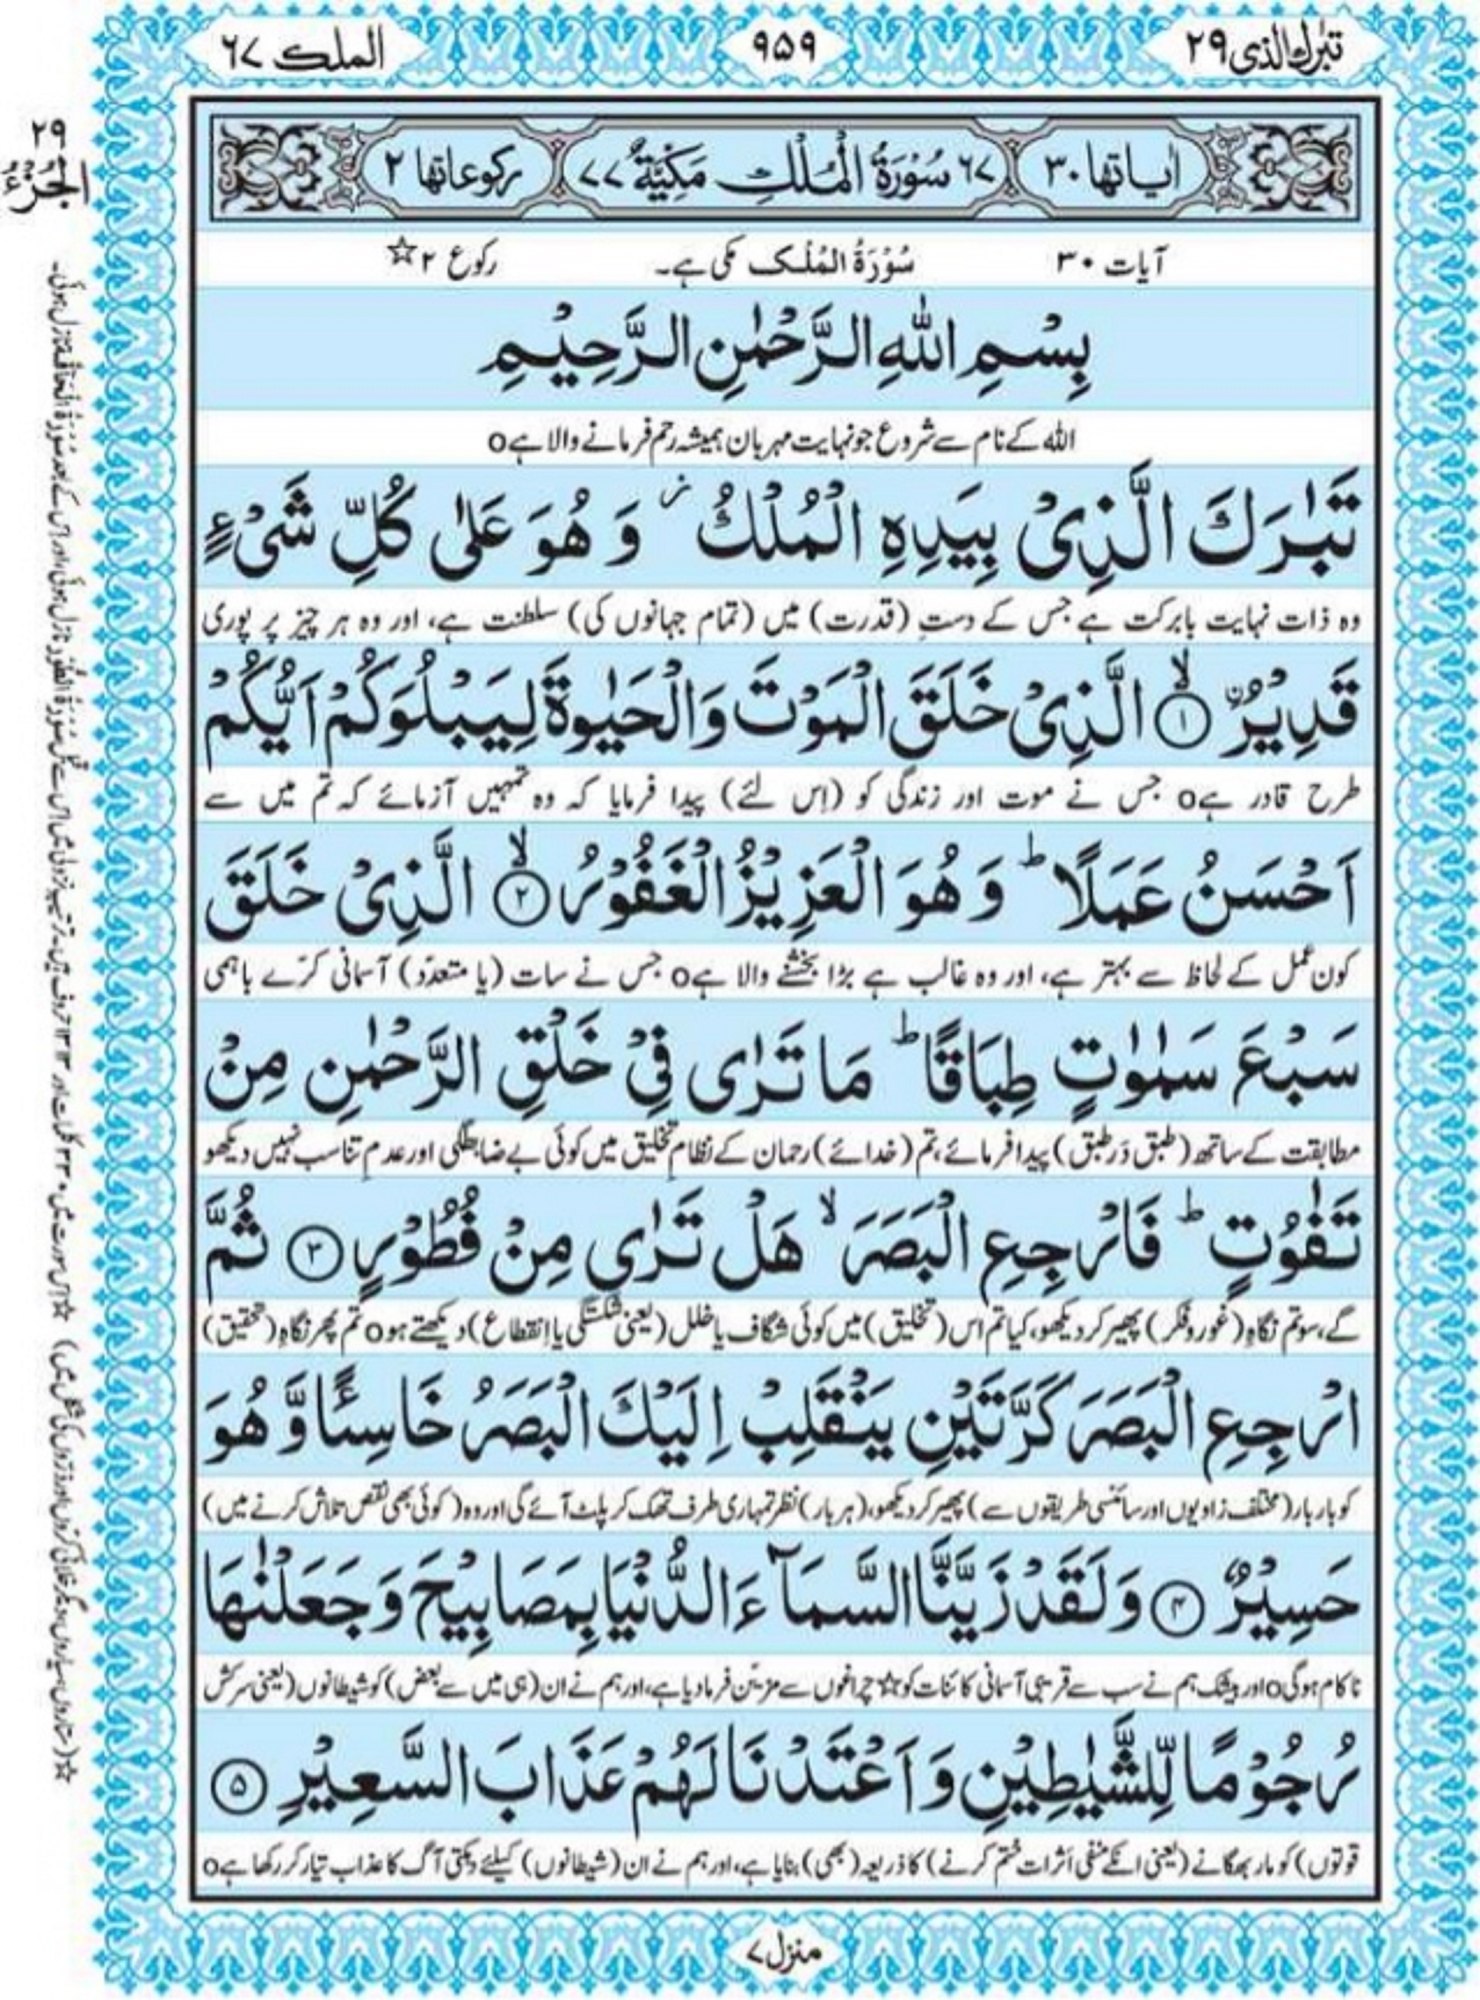 تبٰرك الذی ۲۹
۹۵۹
الملك ۶۷
۲۹
الجُزْءُ
اٰیاتها ۳۰
۶۷ سُوْرَةُ الْمُلْكِ مَكِّیَّةٌ ۷۷
رکوعاتها ۲
آیات ۳۰ سُوْرَةُ الْمُلْک مکی ہے۔ رکوع ۲ ☆
بِسْمِ اللهِ الرَّحْمٰنِ الرَّحِیْمِ
الله کے نام سے شروع جو نہایت مہربان ہمیشہ رحم فرمانے والا ہےo
تَبٰرَكَ الَّذِیْ بِیَدِهِ الْمُلْكُ ؗ وَ هُوَ عَلٰی كُلِّ شَیْءٍ
وہ ذات نہایت بابرکت ہے جس کے دستِ (قدرت) میں (تمام جہانوں کی) سلطنت ہے، اور وہ ہر چیز پر پوری
قَدِیْرُۨ ۙ﴿۱﴾ الَّذِیْ خَلَقَ الْمَوْتَ وَالْحَیٰوةَ لِیَبْلُوَكُمْ اَیُّكُمْ
طرح قادر ہےo جس نے موت اور زندگی کو (اِس لئے) پیدا فرمایا کہ وہ تمہیں آزمائے کہ تم میں سے
اَحْسَنُ عَمَلًا ؕ وَ هُوَ الْعَزِیْزُ الْغَفُوْرُ ۙ﴿۲﴾ الَّذِیْ خَلَقَ
کون عمل کے لحاظ سے بہتر ہے، اور وہ غالب ہے بڑا بخشنے والا ہےo جس نے سات (یا متعدّد) آسمانی کرّے باہمی
سَبْعَ سَمٰوٰتٍ طِبَاقًا ؕ مَا تَرٰی فِیْ خَلْقِ الرَّحْمٰنِ مِنْ
مطابقت کے ساتھ (طبق دَر طبق) پیدا فرمائے، تم (خدائے) رحمان کے نظامِ تخلیق میں کوئی بے ضابطگی اور عدمِ تناسب نہیں دیکھو
تَفٰوُتٍ ؕ فَارْجِعِ الْبَصَرَ ۙ هَلْ تَرٰی مِنْ فُطُوْرٍ ﴿۳﴾ ثُمَّ
گے، سو تم نگاہِ (غور و فکر) پھیر کر دیکھو، کیا تم اس (تخلیق) میں کوئی شگاف یا خلل (یعنی شکستگی یا اِنقطاع) دیکھتے ہوo تم پھر نگاہِ (تحقیق)
ارْجِعِ الْبَصَرَ كَرَّتَیْنِ یَنْقَلِبْ اِلَیْكَ الْبَصَرُ خَاسِئًا وَّ هُوَ
کو بار بار (مختلف زاویوں اور سائنسی طریقوں سے) پھیر کر دیکھو، (ہر بار) نظر تمہاری طرف تھک کر پلٹ آئے گی اور وہ (کوئی بھی نقص تلاش کرنے میں)
حَسِیْرٌ ﴿۴﴾ وَ لَقَدْ زَیَّنَّا السَّمَآءَ الدُّنْیَا بِمَصَابِیْحَ وَ جَعَلْنٰهَا
ناکام ہوگیo اور بیشک ہم نے سب سے قریبی آسمانی کائنات کو☆ چراغوں سے مزیّن فرما دیا ہے، اور ہم نے ان (ہی میں سے بعض) کو شیطانوں (یعنی سرکش
رُجُوْمًا لِّلشَّیٰطِیْنِ وَ اَعْتَدْنَا لَهُمْ عَذَابَ السَّعِیْرِ ﴿۵﴾
قوتوں) کو مار بھگانے (یعنی انکے منفی اَثرات ختم کرنے) کا ذریعہ (بھی) بنایا ہے، اور ہم نے ان (شیطانوں) کیلئے دہکتی آگ کا عذاب تیار کر رکھا ہےo
منزل ۷